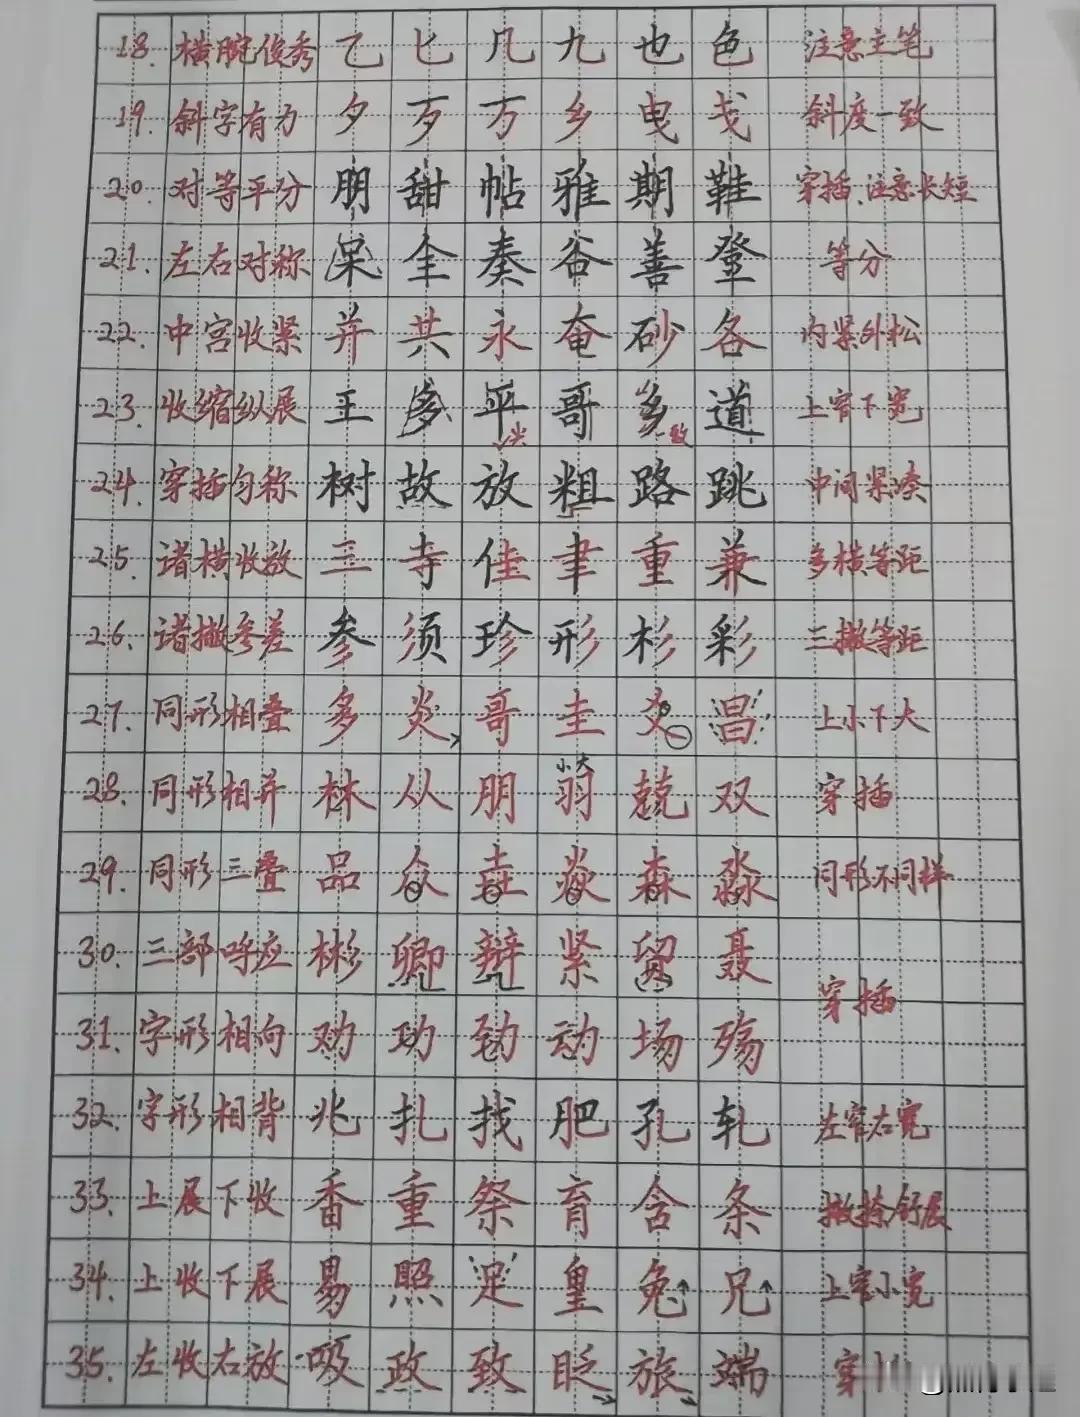 18. 横腕俊秀 乙 匕 凡 九 也 色 注意主笔
19. 斜字有为 夕 歹 万 乡 曳 戋 斜度一致
20. 对等平分 朋 甜 帖 雅 期 鞋 穿插、注意长短
21. 左右对称 杲 全 奏 谷 善 登 等分
22. 中宫收紧 并 共 永 奄 砂 各 内紧外松
23. 收缩纵展 王 多 平 哥 多 道 上窄下宽
24. 穿插匀称 树 故 放 粗 路 跳 中间紧凑
25. 诸横收放 三 寺 佳 聿 重 兼 多横等距
26. 诸撇参差 参 须 珍 形 杉 彩 三撇等距
27. 同形相叠 多 炎 哥 圭 爻 昌 上小下大
小大
28. 同形相并 林 从 朋 羽 兢 双 穿插
29. 同形三叠 品 众 垚 焱 森 淼 同形不同样
30. 三部呼应 彬 卿 辩 紧 留 聂
穿插
31. 字形相向 劝 功 劲 动 场 殇
32. 字形相背 兆 扎 找 肥 孔 轧 左窄右宽
33. 上展下收 番 重 祭 育 含 条 撇捺舒展
34. 上收下展 易 照 足 皇 兔 兄 上窄小宽
35. 左收右放 吸 政 致 眨 旅 端 穿